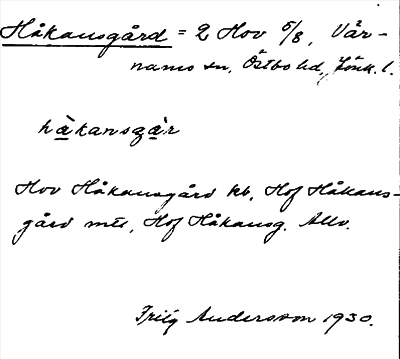 Håkansgård = 2 Hov 5/8, Vär-
namo sn, Östbo hd, Jönk. l.
hàkansgàr
Hov Håkansgård kb, Hof Håkans-
gård mtl, Hof Håkansg. Allv.
Frity Andersson 1930.